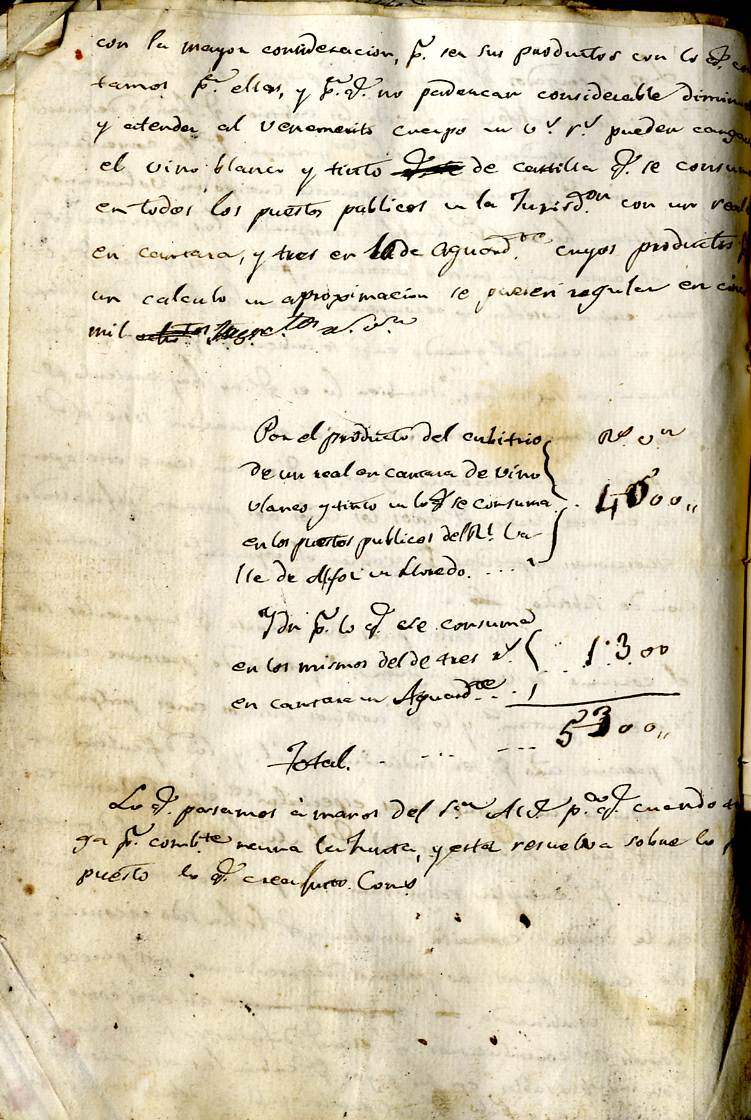 con la mayor consideracion, pr. ser sus productos con lo q.
tamos pr. ellas, y pr. q. no padezcan considerable dimin
y atender al venemerito cuerpo en v.n r.n pueden carga
el vino blanco y tinto de castilla q. se consum
en todos los puestos publicos en la Jurisd.on con un real
en cantara, y tres en la de Aguard.te cuyos productos
un calculo en aproximacion se pueden regular en cinco
mil trescientos r.s v.n
Por el producto del arbitrio R.s v.n
de un real en cantara de vino
blanco y tinto en lo q. se consuma 4000,,
en los puestos publicos del R.l Va
lle de en Lloredo. ...
Idn pr. lo q. se consuma
en los mismos del de tres r.s 1.300
en cantara en Aguard.te
5300,,
Total. - --- ---
Lo q. pasamos á manos del S.or Alc.e p.a q. cuando
ga pr. comb.te reuna la Junta, y esta resuelva sobre lo
puesto lo q. crea justo. Cons